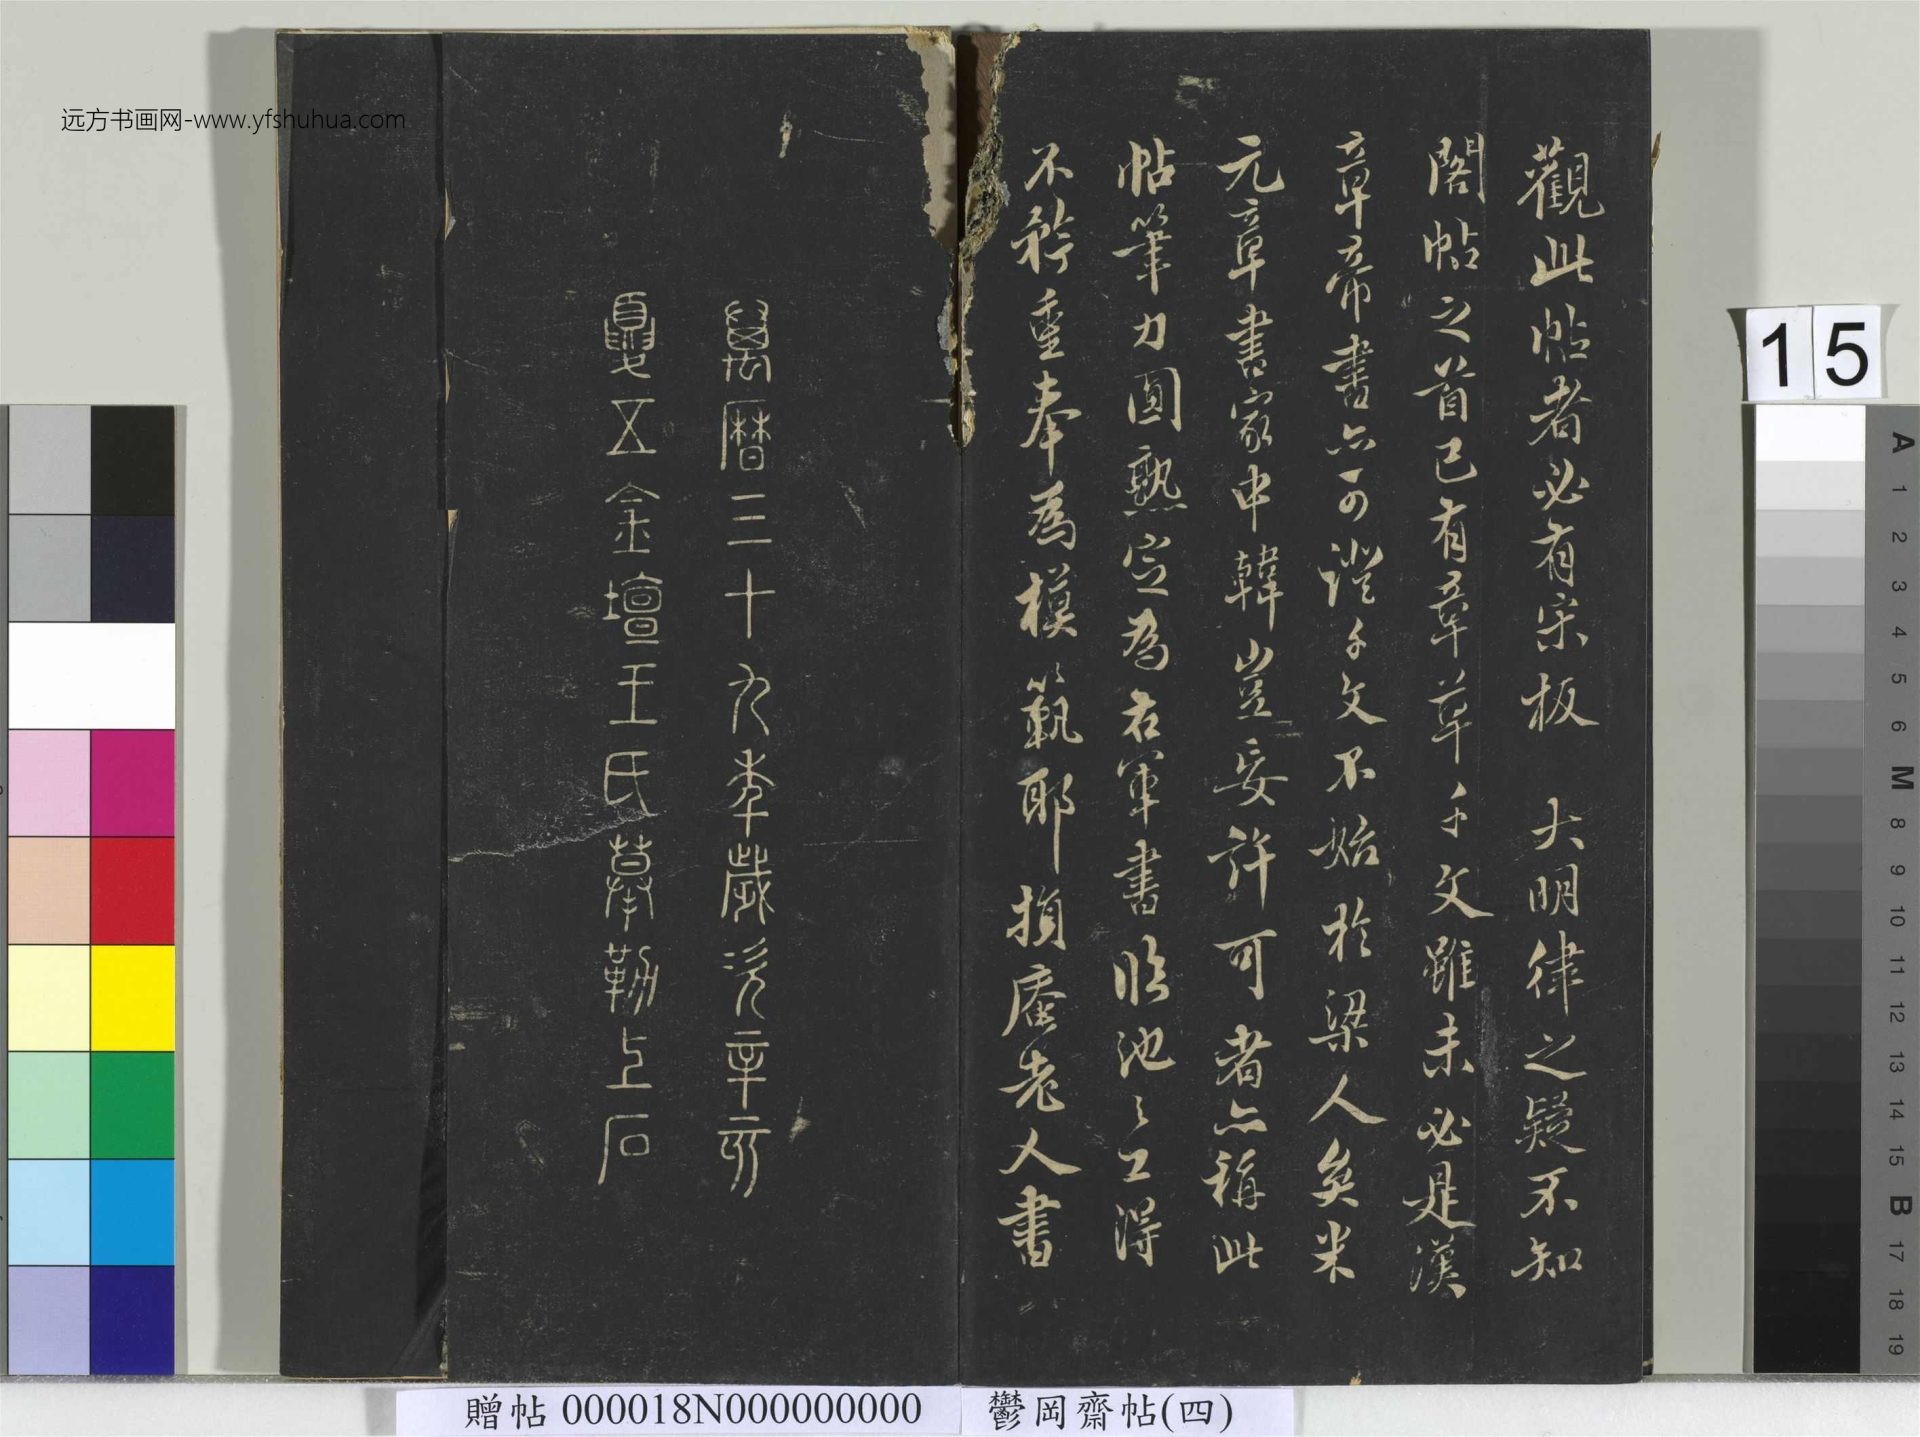 远方书画网-www.yfshuhua.com
觀此帖者必有宋板 大明律之疑不知
閣帖之首已有章草千文雖未必是漢
章帝書亦可證千文不始於梁人矣米
元章書家申韓豈妄許可者亦稱此
帖筆力圓熟定為右軍書臨池之工得
不矜重奉為模範耶損庵老人書
萬曆三十九年歲次辛亥
夏五金壇王氏摹勒上石
15
A 1 2 3 4 5 6 M 8 9 10 11 12 13 14 15 B 17 18 19
贈帖 000018N000000000 鬱岡齋帖(四)